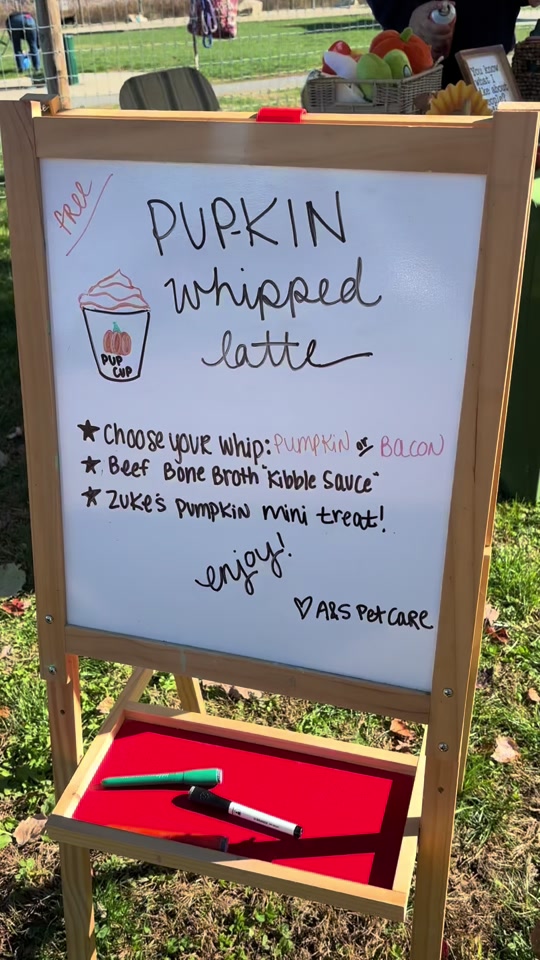 free
PUP-KIN
whipped
latte
PUP
CUP
★ Choose your whip: Pumpkin or Bacon
★ Beef Bone Broth "Kibble Sauce"
★ Zuke's Pumpkin mini treat!
enjoy!
♡ A&S Pet Care
You know
what I
like about
people?